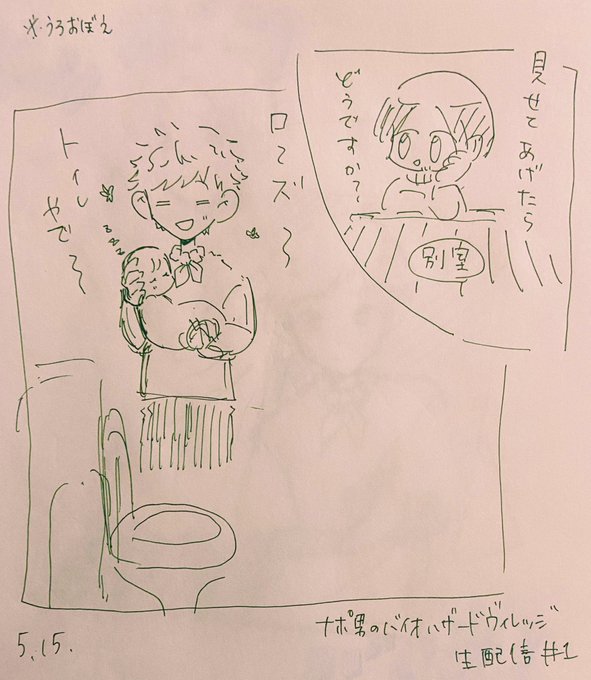 ※うろおぼえ
見せてあげたら
どうですか?～
別室
ロ～ズ～
トイレ
やで～
5.15.
ナポ男のバイオハザードヴィレッジ
生配信#1